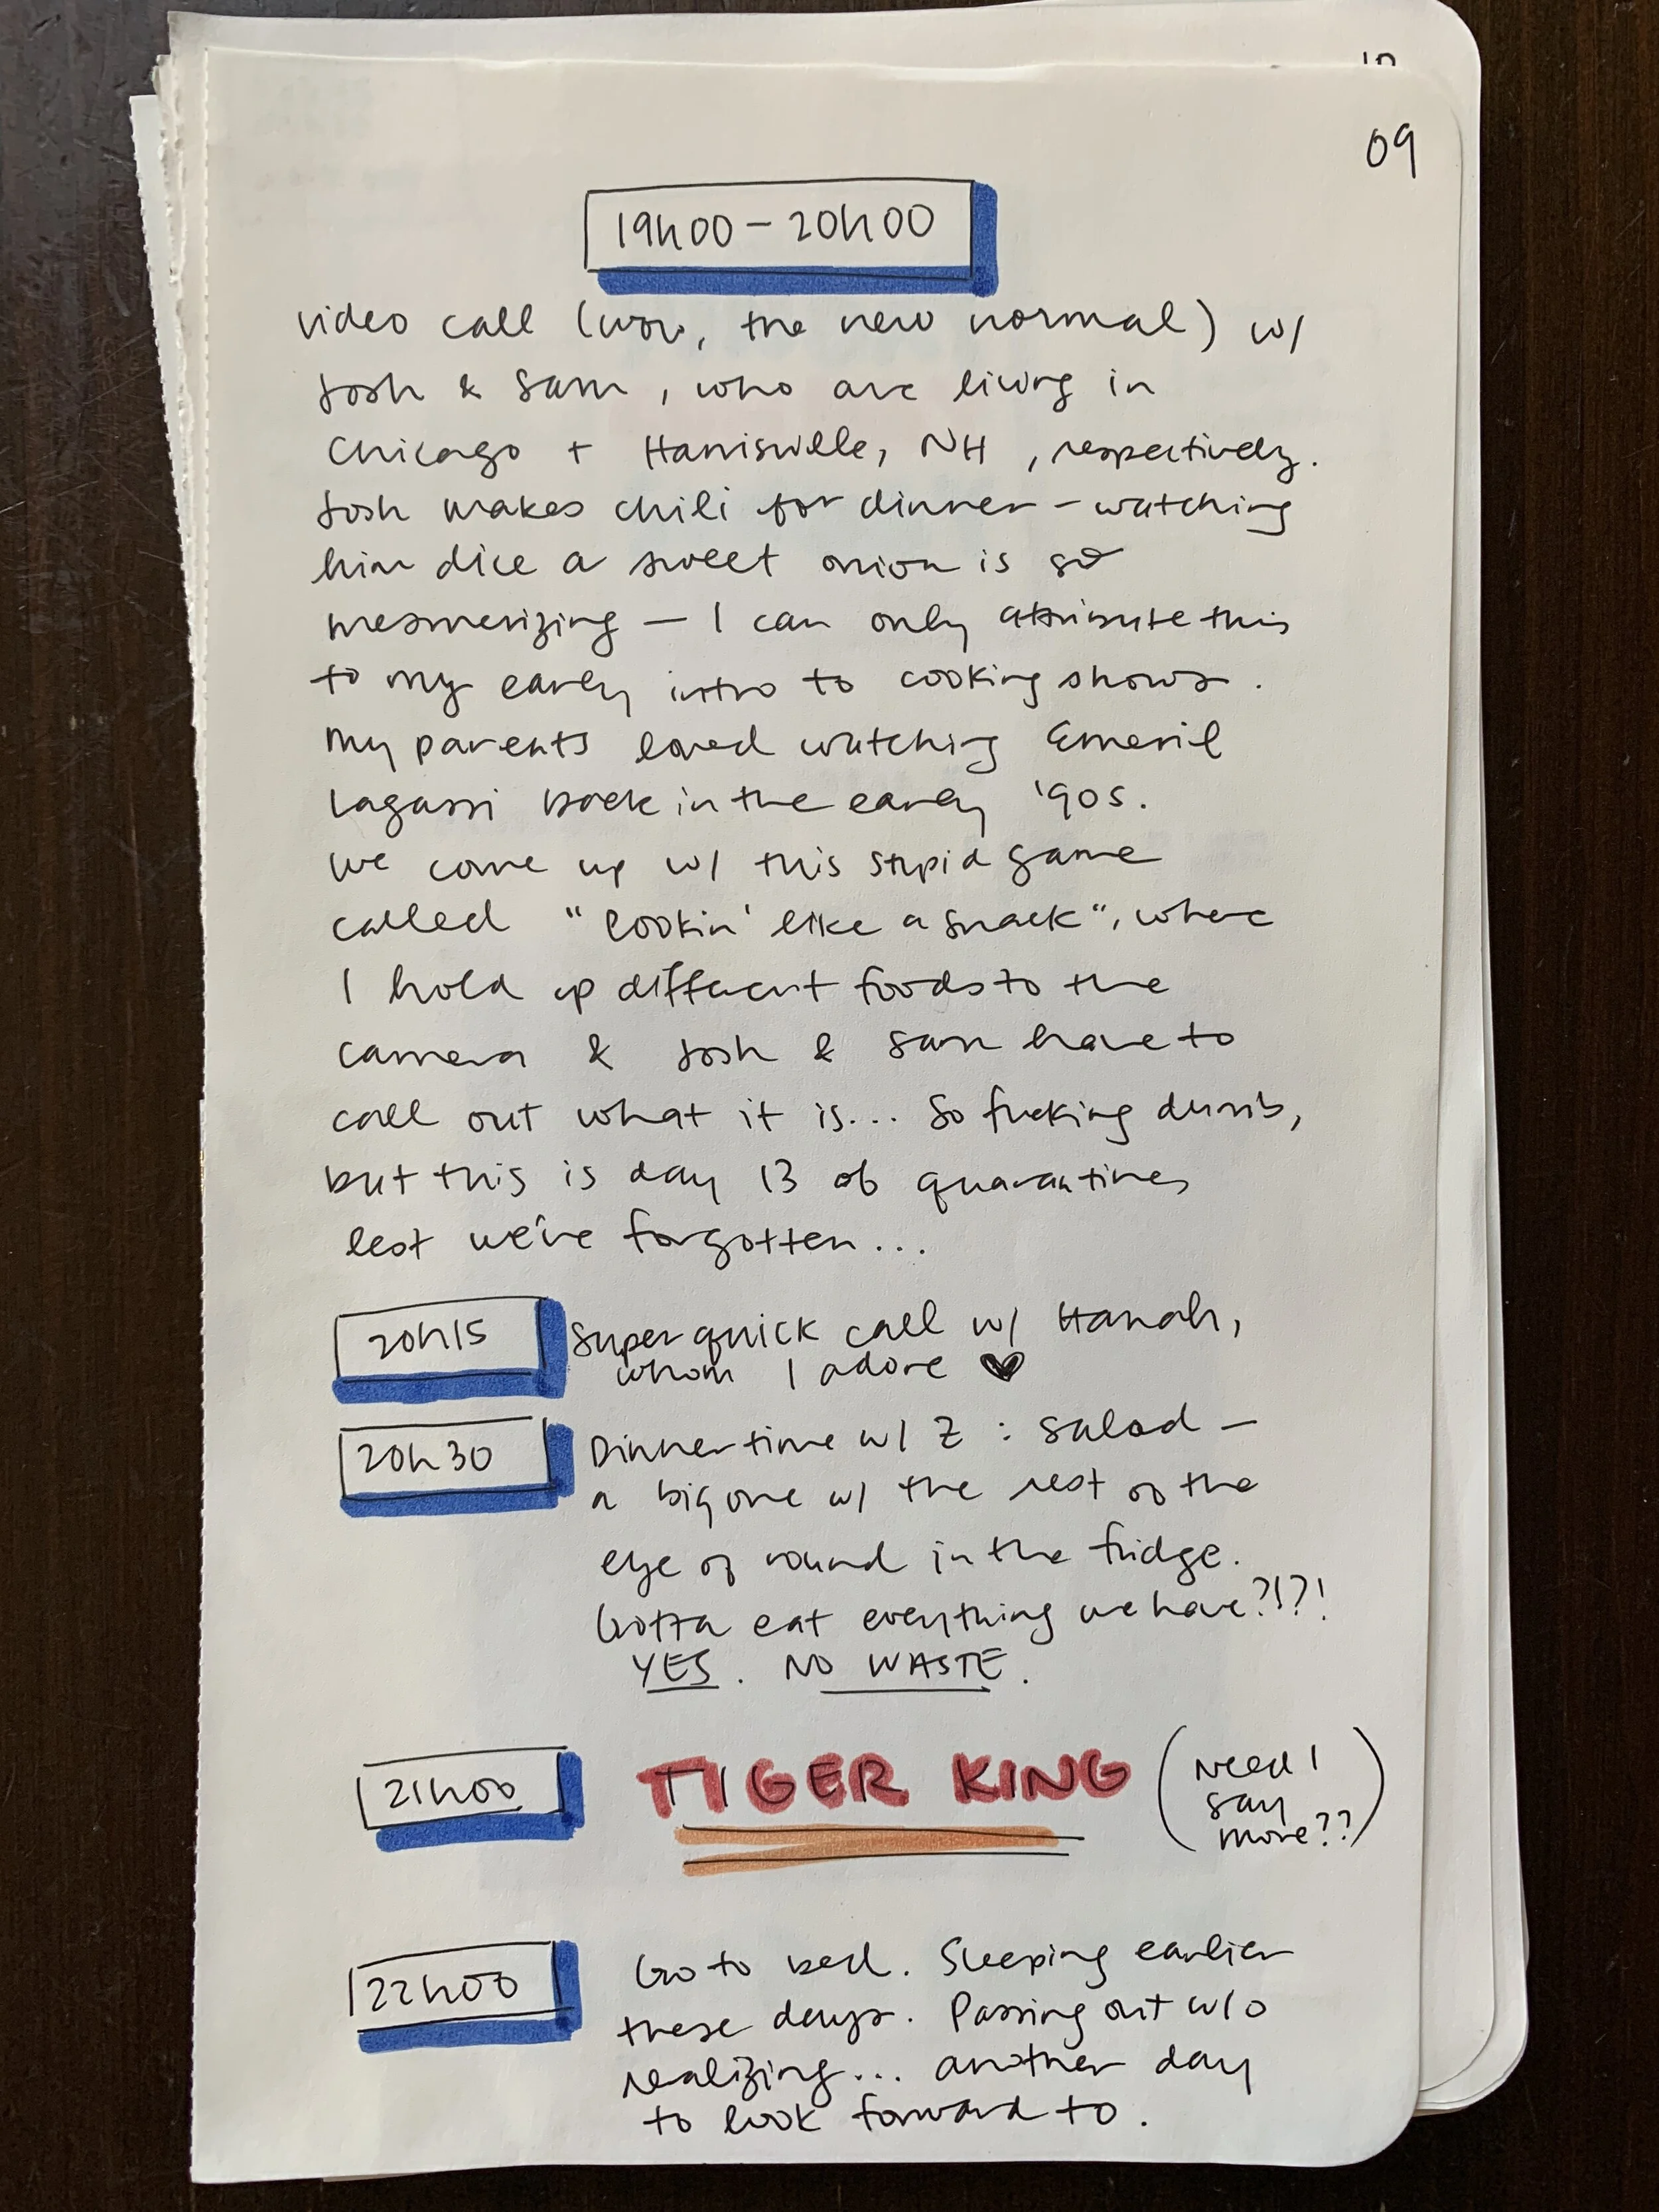 09
19h00 – 20h00
video call (wow, the new normal) w/
Josh & Sam, who are living in
Chicago + Harrisville, NH, respectively.
Josh makes chili for dinner – watching
him dice a sweet onion is so
mesmerizing – I can only attribute this
to my early intro to cooking shows.
My parents loved watching Emeril
Lagassi back in the early '90s.
We come up w/ this stupid game
called "lookin' like a snack", where
I hold up different foods to the
camera & Josh & Sam have to
call out what it is... So fucking dumb,
but this is day 13 of quarantine,
lest we've forgotten...
20h15 Super quick call w/ Hanah,
whom I adore ♥
20h30 Dinner time w/ Z : salad –
a big one w/ the rest of the
eye of round in the fridge.
Gotta eat everything we have?!?!
YES. NO WASTE.
21h00 TIGER KING (need I
say
more??)
22h00 Go to bed. Sleeping earlier
these days. Passing out w/o
realizing... another day
to look forward to.